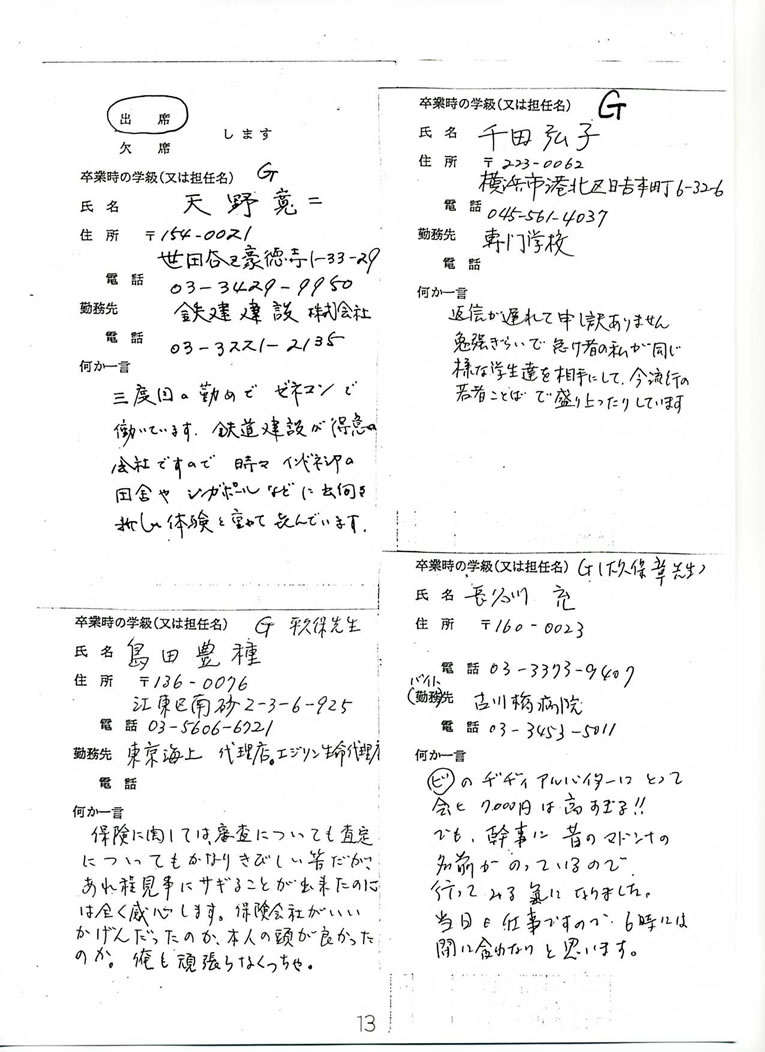 出　席
欠　席
します
卒業時の学級(又は担任名) G
氏 名 天野寛二
住 所 〒154-0021
世田谷区豪徳寺1-33-29
電 話 03-3429-9950
勤務先 鉄建建設 株式会社
電 話 03-3221-2135
何か一言
三度目の勤めで ゼネコンで
働いています. 鉄道建設が得意の
会社ですので 時々 インドネシアの
田舎や シンガポールなどに出向き
新しい体験を 喜んでいます.
卒業時の学級(又は担任名) G
氏 名 千田弘子
住 所 〒223-0062
横浜市港北区日吉本町6-32-6
電 話 045-561-4037
勤務先 専門学校
電 話
何か一言
返信が遅れて申し訳ありません
勉強ぎらいで 怠け者の私が同じ
様な学生達を相手にして、今流行の
若者ことば で盛り上ったりしています
卒業時の学級(又は担任名) G 平久保先生
氏 名 島田豊種
住 所 〒136-0076
江東区南砂2-3-6-925
電 話 03-5606-6721
勤務先 東京海上 代理店。エジソン生命代理店
電 話
何か一言
保険に関しては、審査についても査定
についてもかなりきびしい筈だが、
あれ程見事にサギることが出来たのに
は全く感心します。保険会社がいい
かげんだったのか、本人の頭が良かった
のか。俺も頑張らなくっちゃ。
卒業時の学級(又は担任名) G(久保章先生)
氏 名 長谷川 充
住 所 〒160-0023
電 話 03-3373-9407
(バイト)
勤務先 古川橋病院
電 話 03-3453-5011
何か一言
ビンのヂヂィアルバイターにとって
会ヒ 7,000円は高すぎる!!
でも、幹事に昔のマドンナの
名前がのっているので
行ってみる氣になりました。
当日も仕事ですので、6時には
間に合わないと思います。
13